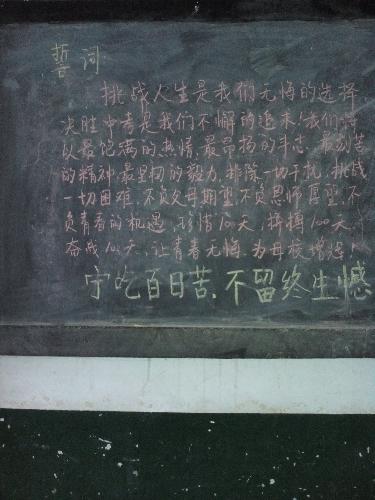 誓词
挑战人生是我们无悔的选择
决胜中考是我们不懈的追求!我们将
以最饱满的热情、最昂扬的斗志、最刻苦
的精神、最坚韧的毅力,排除一切干扰,挑战
一切困难,不负父母期望,不负恩师厚望,不
负青春的机遇,珍惜100天,拼搏100天,
奋战100天,让青春无悔,为母校增辉!
宁吃百日苦、不留终生憾